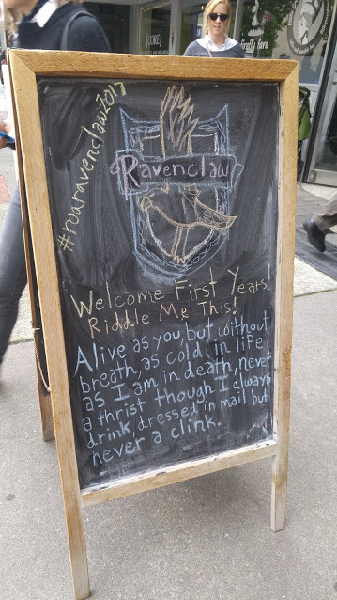 #roaravenclaw2017
Ravenclaw
Welcome First Years!
Riddle Me This!
Alive as you, but without
breath, as cold in life
as I am in death, never
a thrist though I always
drink, dressed in mail but
never a clink.